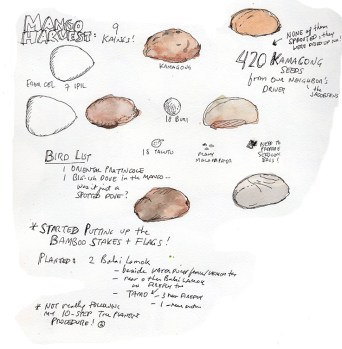 MANGO HARVEST: 9 KAINGS!
KAMAGONG
NONE OF THEM SPROUTED; THEY WERE DRIED UP!
420 KAMAGONG SEEDS
FROM OUR NEIGHBOR'S DRIVER
FROM DEL 7 IPIL
18 BUNI
18 TALUTO
MANY MALAPAPAYA
NEED TO PREPARE SEEDLING BAGS!
BIRD LIST
1 ORIENTAL PRATINCOLE
1 BIG-ISH DOVE IN THE MANGO...
WAS IT JUST A
SPOTTED DOVE?
* STARTED PUTTING UP THE
BAMBOO STAKES + FLAGS!
PLANTED: 2 BALAI LAMOK
- beside WATER PUMP
- near other BALAI LAMOK
or FIREFLY TR
- TANGO 3 near FIREFLY
- 1 near
* NOT REALLY FOLLOWING
MY 10-STEP TREE PLANTING
PROCEDURE!